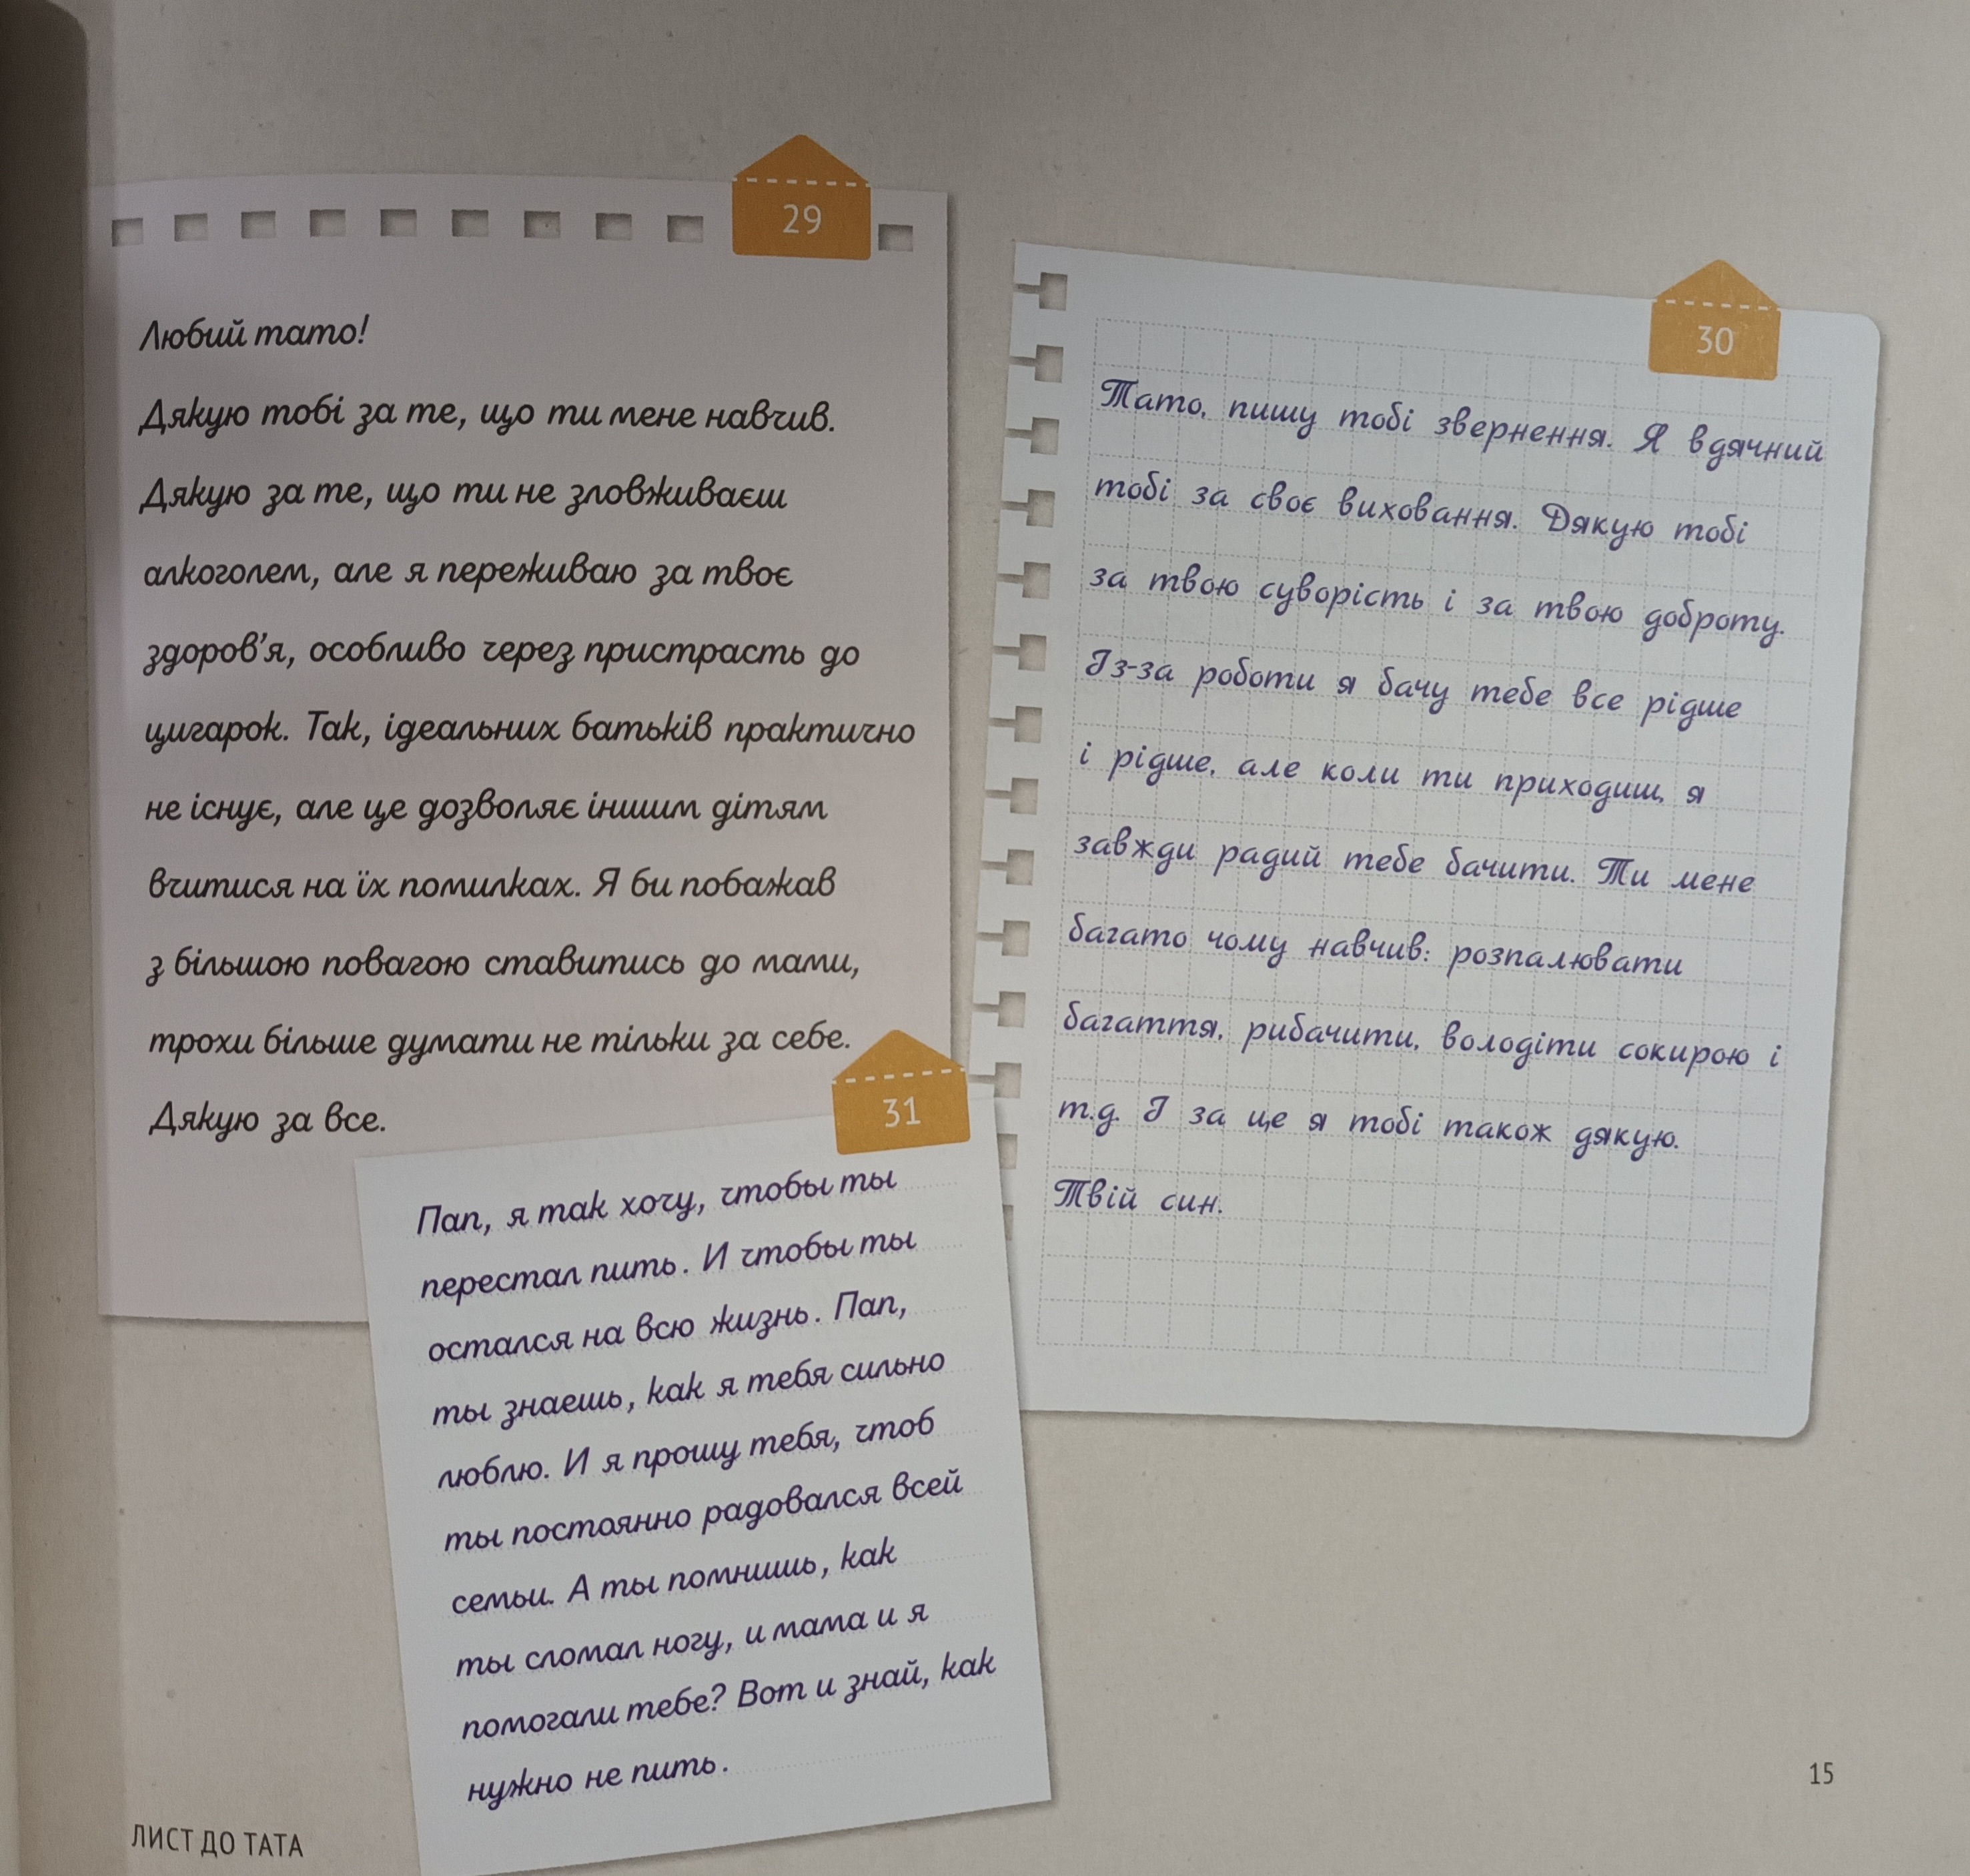 29
Любий тато!
Дякую тобі за те, що ти мене навчив.
Дякую за те, що ти не зловживаєш
алкоголем, але я переживаю за твоє
здоров’я, особливо через пристрасть до
цигарок. Так, ідеальних батьків практично
не існує, але це дозволяє іншим дітям
вчитися на їх помилках. Я би побажав
з більшою повагою ставитись до мами,
трохи більше думати не тільки за себе.
Дякую за все.
30
Тато, пишу тобі звернення. Я вдячний
тобі за своє виховання. Дякую тобі
за твою суворість і за твою доброту.
Із-за роботи я бачу тебе все рідше
і рідше, але коли ти приходиш, я
завжди радий тебе бачити. Ти мене
багато чому навчив: розпалювати
багаття, рибачити, володіти сокирою і
т.д. І за це я тобі також дякую.
Твій син.
31
Пап, я так хочу, чтобы ты
перестал пить. И чтобы ты
остался на всю жизнь. Пап,
ты знаешь, как я тебя сильно
люблю. И я прошу тебя, чтоб
ты постоянно радовался всей
семьи. А ты помнишь, как
ты сломал ногу, и мама и я
помогали тебе? Вот и знай, как
нужно не пить.
ЛИСТ ДО ТАТА
15